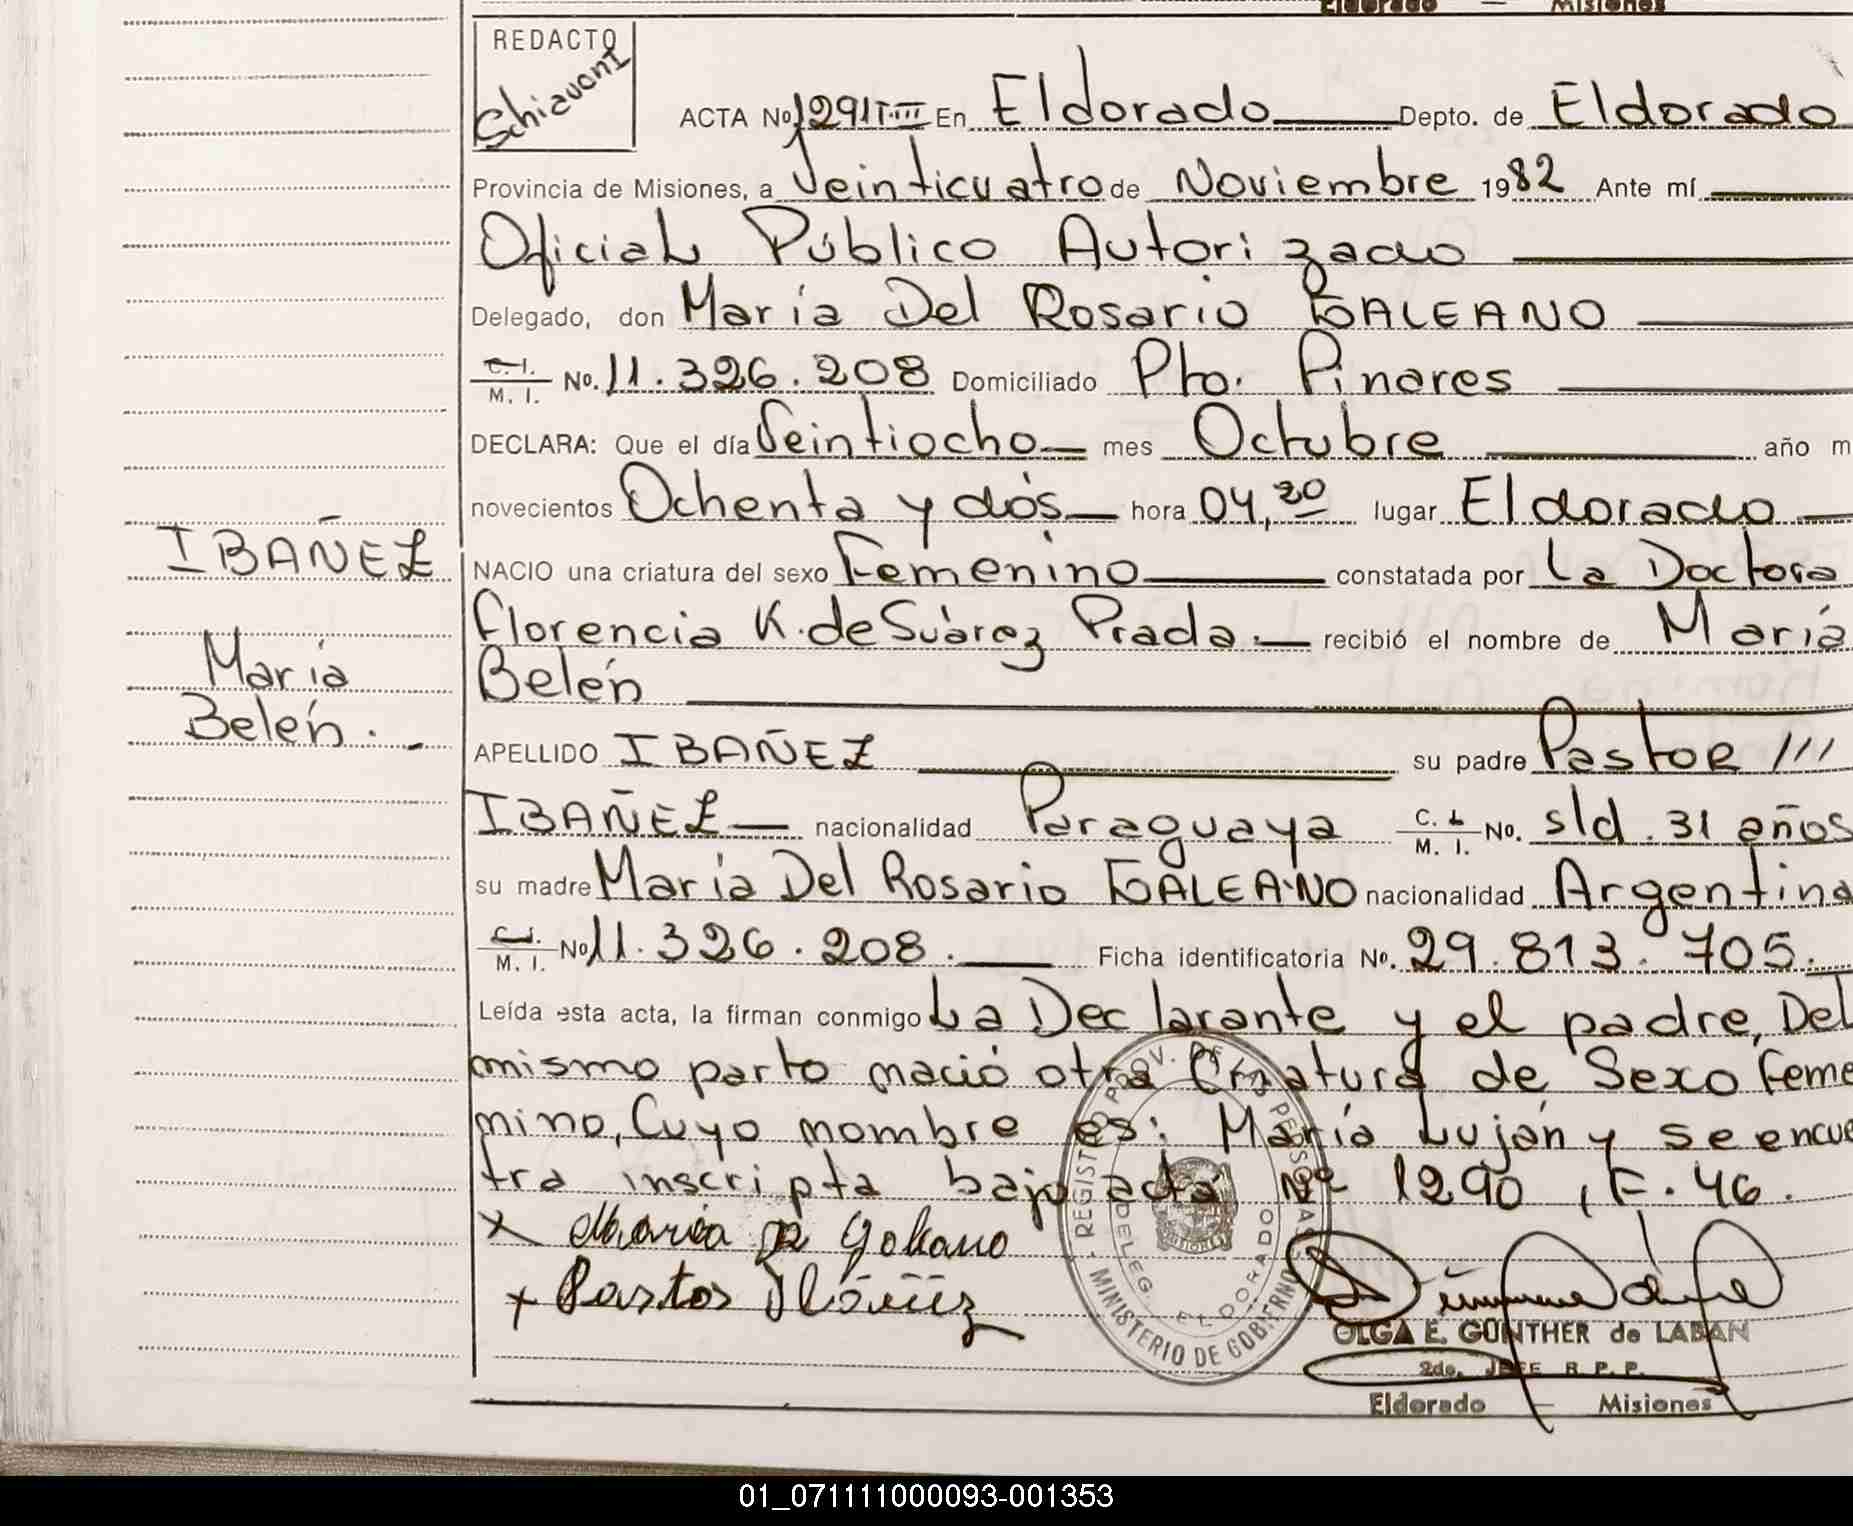 Eldorado — Misiones
REDACTO
Schiavoni
ACTA No. 1291 En Eldorado Depto. de Eldorado
Provincia de Misiones, a Veinticuatro de Noviembre 1982 Ante mí
Oficial Público Autorizado
Delegado, don María Del Rosario GALEANO
C.I. M. I. No. 11.326.208 Domiciliado Pto. Pinares
DECLARA: Que el día Veintiocho mes Octubre año m
novecientos Ochenta y dós hora 04,20 lugar Eldorado
IBAÑEZ
NACIO una criatura del sexo Femenino constatada por La Doctora
Florencia K. de Suárez Prada.— recibió el nombre de María
María
Belén
Belén.
APELLIDO IBAÑEZ su padre Pastor ///
IBAÑEZ nacionalidad Paraguaya C. I. M. I. No. s/d. 31 años
su madre María Del Rosario GALEANO nacionalidad Argentina
C.I. M. I. No 11.326.208. Ficha identificatoria No. 29.813.705.
Leída esta acta, la firman conmigo La Declarante y el padre, Del
mismo parto nació otra Criatura de Sexo Feme
nino, Cuyo nombre es: María Luján y se encue
tra inscripta bajo acta Nº 1290, F. 46.
x Maria R Galeano
x Pastor Ibáñez
REGISTRO PROV. DE LAS PERSONAS
MINISTERIO DE GOBIERNO
DELEG. ELDORADO
MISIONES
OLGA E. GUNTHER de LABAN
2do. JEFE R. P. P.
Eldorado — Misiones
01_071111000093-001353